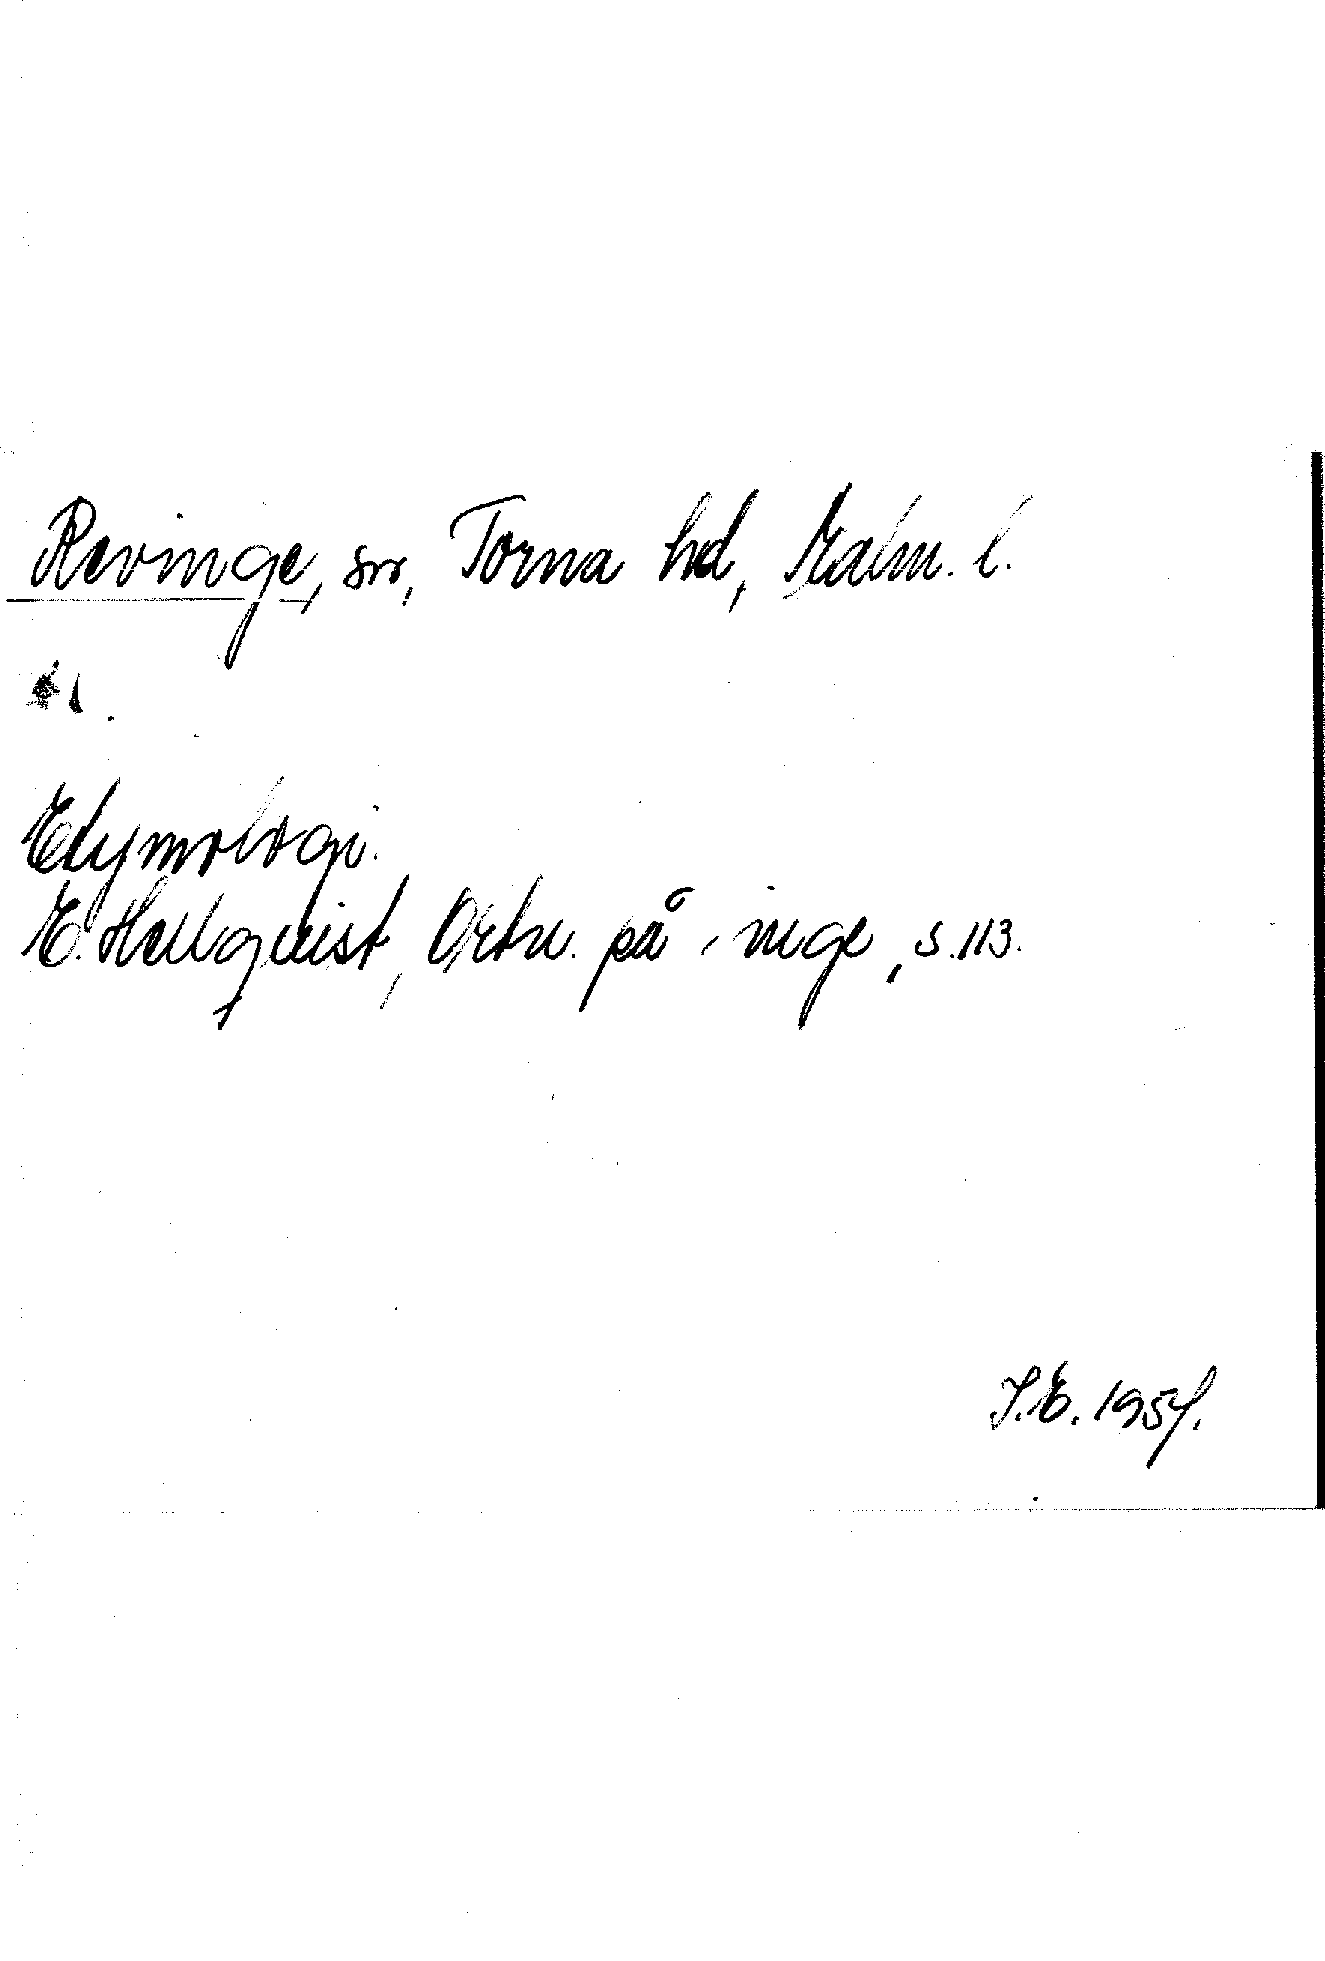 Revinge, sn, Torna hd, Malm. l.
Etymologi.
E. Hellquist, Ortn. på -inge, s. 113.
I.E. 1957.